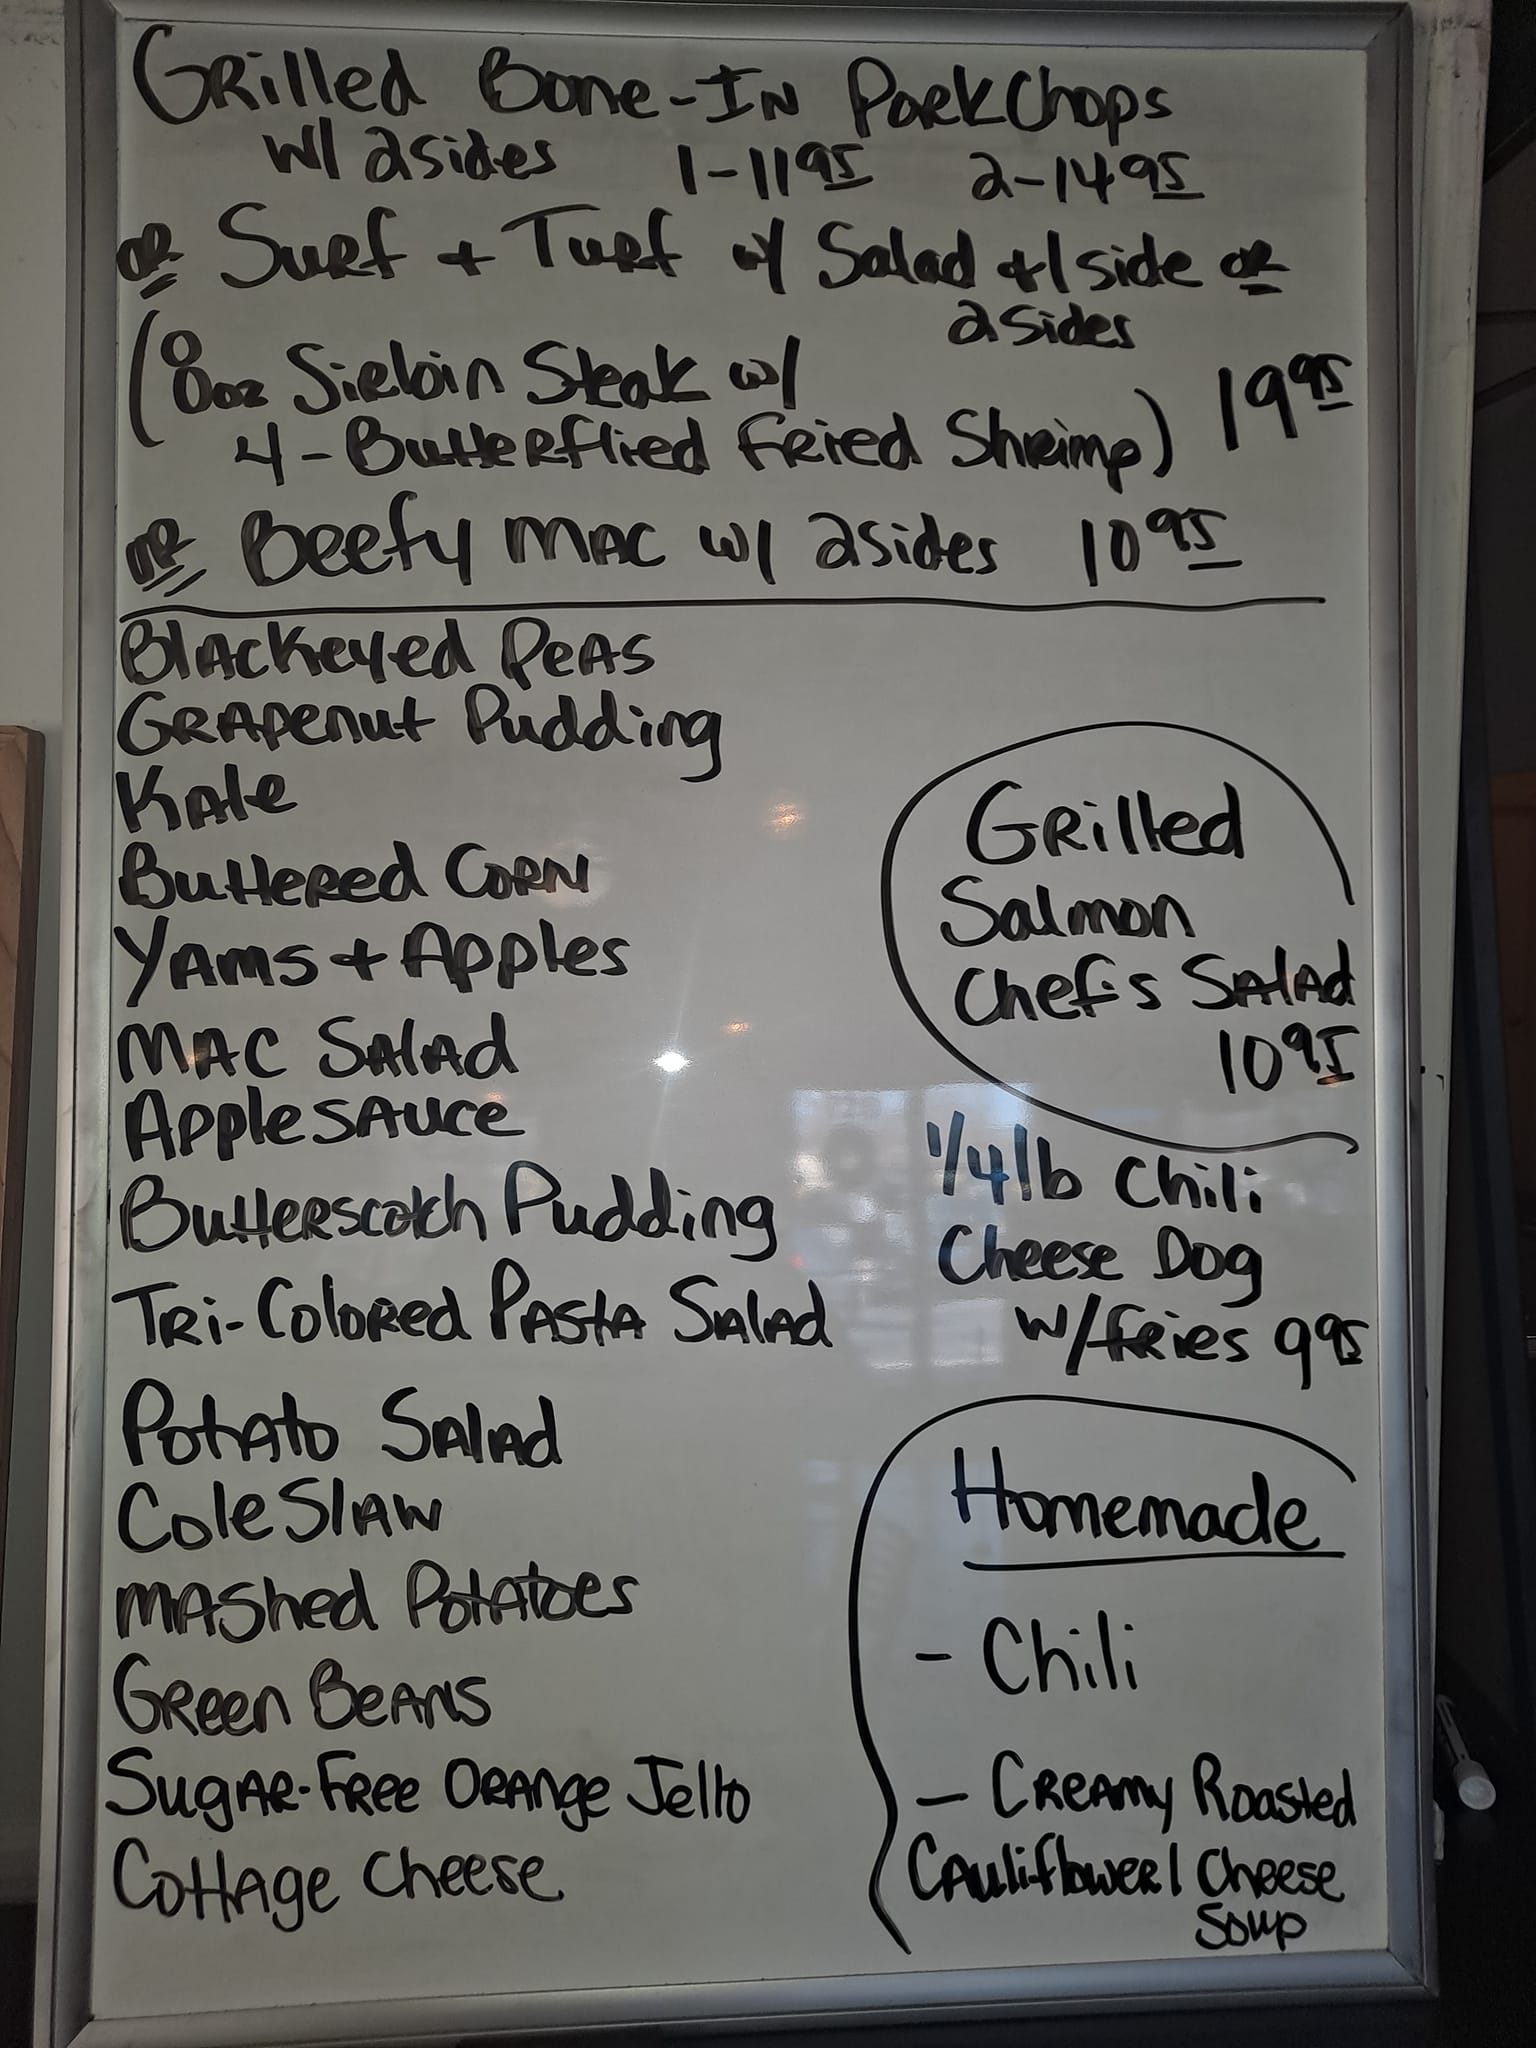 Grilled Bone-In Pork Chops
w/ 2 sides 1-11 95 2-14 95
or Surf + Turf w/ Salad + 1 side or
2 sides
(8oz Sirloin Steak w/
4-Butterflied Fried Shrimp) 19 95
or Beefy Mac w/ 2 sides 10 95
Blackeyed Peas
Grapenut Pudding
Kale
Buttered Corn
Yams + Apples
Mac Salad
Applesauce
Butterscotch Pudding
Tri-Colored Pasta Salad
Potato Salad
Cole Slaw
Mashed Potatoes
Green Beans
Sugar-Free Orange Jello
Cottage Cheese
Grilled
Salmon
Chef's Salad
10 95
1/4 lb Chili
Cheese Dog
w/ fries 9 95
Homemade
- Chili
- Creamy Roasted
Cauliflower / Cheese
Soup